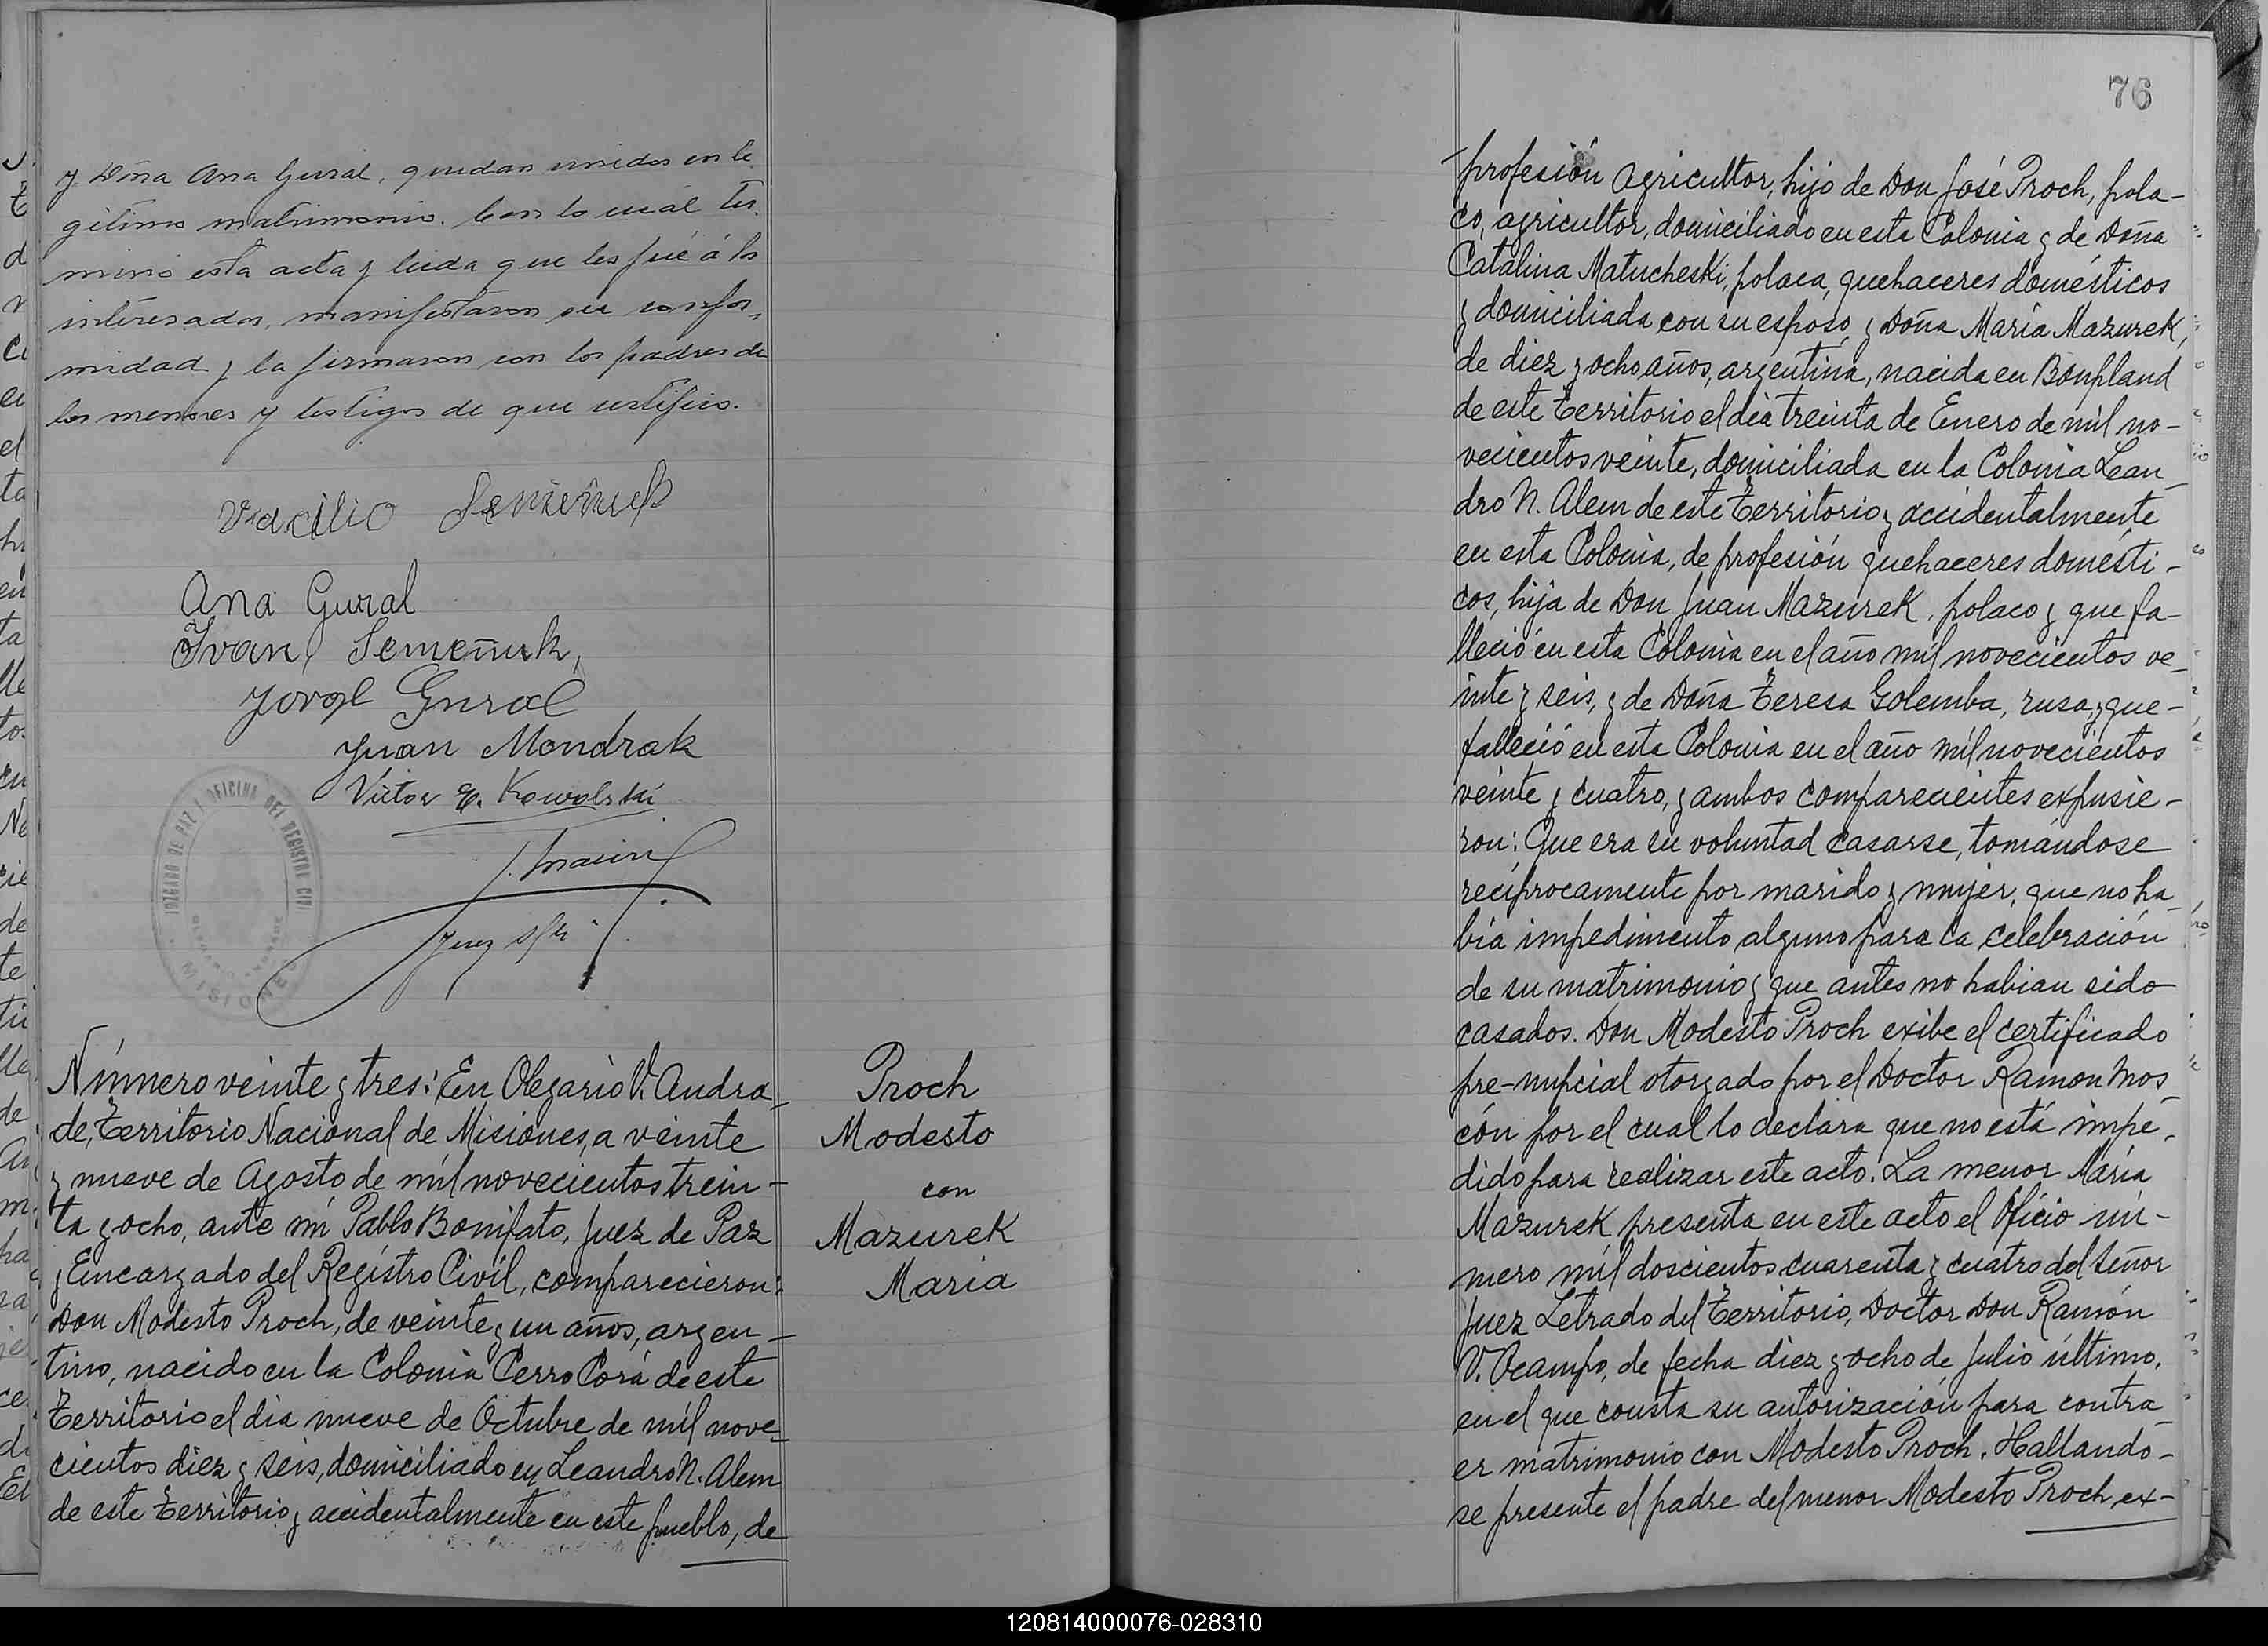 y Doña Ana Gural, quedan unidos en le
gitimo matrimonio. Con lo cual ter
minó esta acta y leida que les fué á los
interesados, manifestaron su confor,
midad y la firmaron con los padres de
los menores y testigos de que certifico.
Vacilio Semeñuk
Ana Gural
Ivan Semeñuk,
Jorge Gural
Juan Mondrak
Victor E. Kowalski
JUZGADO DE PAZ Y OFICINA DEL REGISTRO CIVI
MISIONES
Número veinte y tres: En Olegario V. Andra_
de, Territorio Nacional de Misiones, a veinte
y nueve de Agosto de mil novecientos trein-
ta y ocho, ante mí Pablo Bonifato, Juez de Paz
y Encargado del Registro Civil, comparecieron:
Don Modesto Proch, de veinte y un años, argen-
tino, nacido en la Colonia Cerro Corá de este
Territorio el dia nueve de Octubre de mil nove_
cientos diez y seis, domiciliado en Leandro N. Alem
de este Territorio y accidentalmente en este pueblo, de
Proch
Modesto
con
Mazurek
Maria
76
profesión agricultor, hijo de Don José Proch, pola-
co, agricultor, domiciliado en esta Colonia y de Doña
Catalina Matucheski, polaca, quehaceres domésticos
y domiciliada con su esposo, y Doña María Mazurek,
de diez y ocho años, argentina, nacida en Bonpland
de este Territorio el dia treinta de Enero de mil no-
vecientos veinte, domiciliada en la Colonia Lean_
dro N. Alem de este Territorio y accidentalmente
en esta Colonia, de profesión quehaceres domésti-
cos, hija de Don Juan Mazurek, polaco y que fa-
lleció en esta Colonia en el año mil novecientos ve_
inte y seis, y de Doña Teresa Golemba, rusa, y que-
falleció en esta Colonia en el año mil novecientos
veinte y cuatro, y ambos comparecientes expusie-
ron: Que era su voluntad casarse, tomándose
recíprocamente por marido y mujer, que no ha_
bía impedimento alguno para la celebración
de su matrimonio y que antes no habian sido
casados. Don Modesto Proch exibe el certificado
pre-nupcial otorgado por el Doctor Ramon Mos_
cón por el cual lo declara que no está impe-
dido para realizar este acto. La menor María
Mazurek presenta en este acto el Oficio nú-
mero mil doscientos cuarenta y cuatro del Señor
Juez Letrado del Territorio, Doctor Don Ramón
V. Ocampo, de fecha diez y ocho de Julio último,
en el que consta su autorización para contra_
er matrimonio con Modesto Proch. Hallando-
se presente el padre del menor Modesto Proch, ex-
120814000076-028310